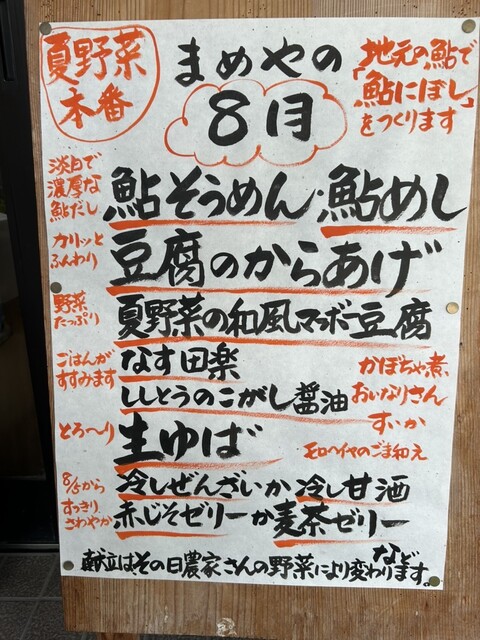 夏野菜
本番
まめやの
8月
地元の鮎で
「鮎にぼし」
をつくります
淡白で
濃厚な
鮎だし
鮎そうめん・鮎めし
カリッと
ふんわり
豆腐のからあげ
野菜
たっぷり
夏野菜の和風マーボー豆腐
ごはんが
すすみます
なす田楽
ししとうのこがし醤油
かぼちゃ煮、
おいなりさん
すいか
とろ〜り
生ゆば
モロヘイヤのごま和え
8/5から
すっきり
さわやか
冷しぜんざいか冷し甘酒
赤じそゼリーか麦茶ゼリー
など
献立はその日農家さんの野菜により変わります。